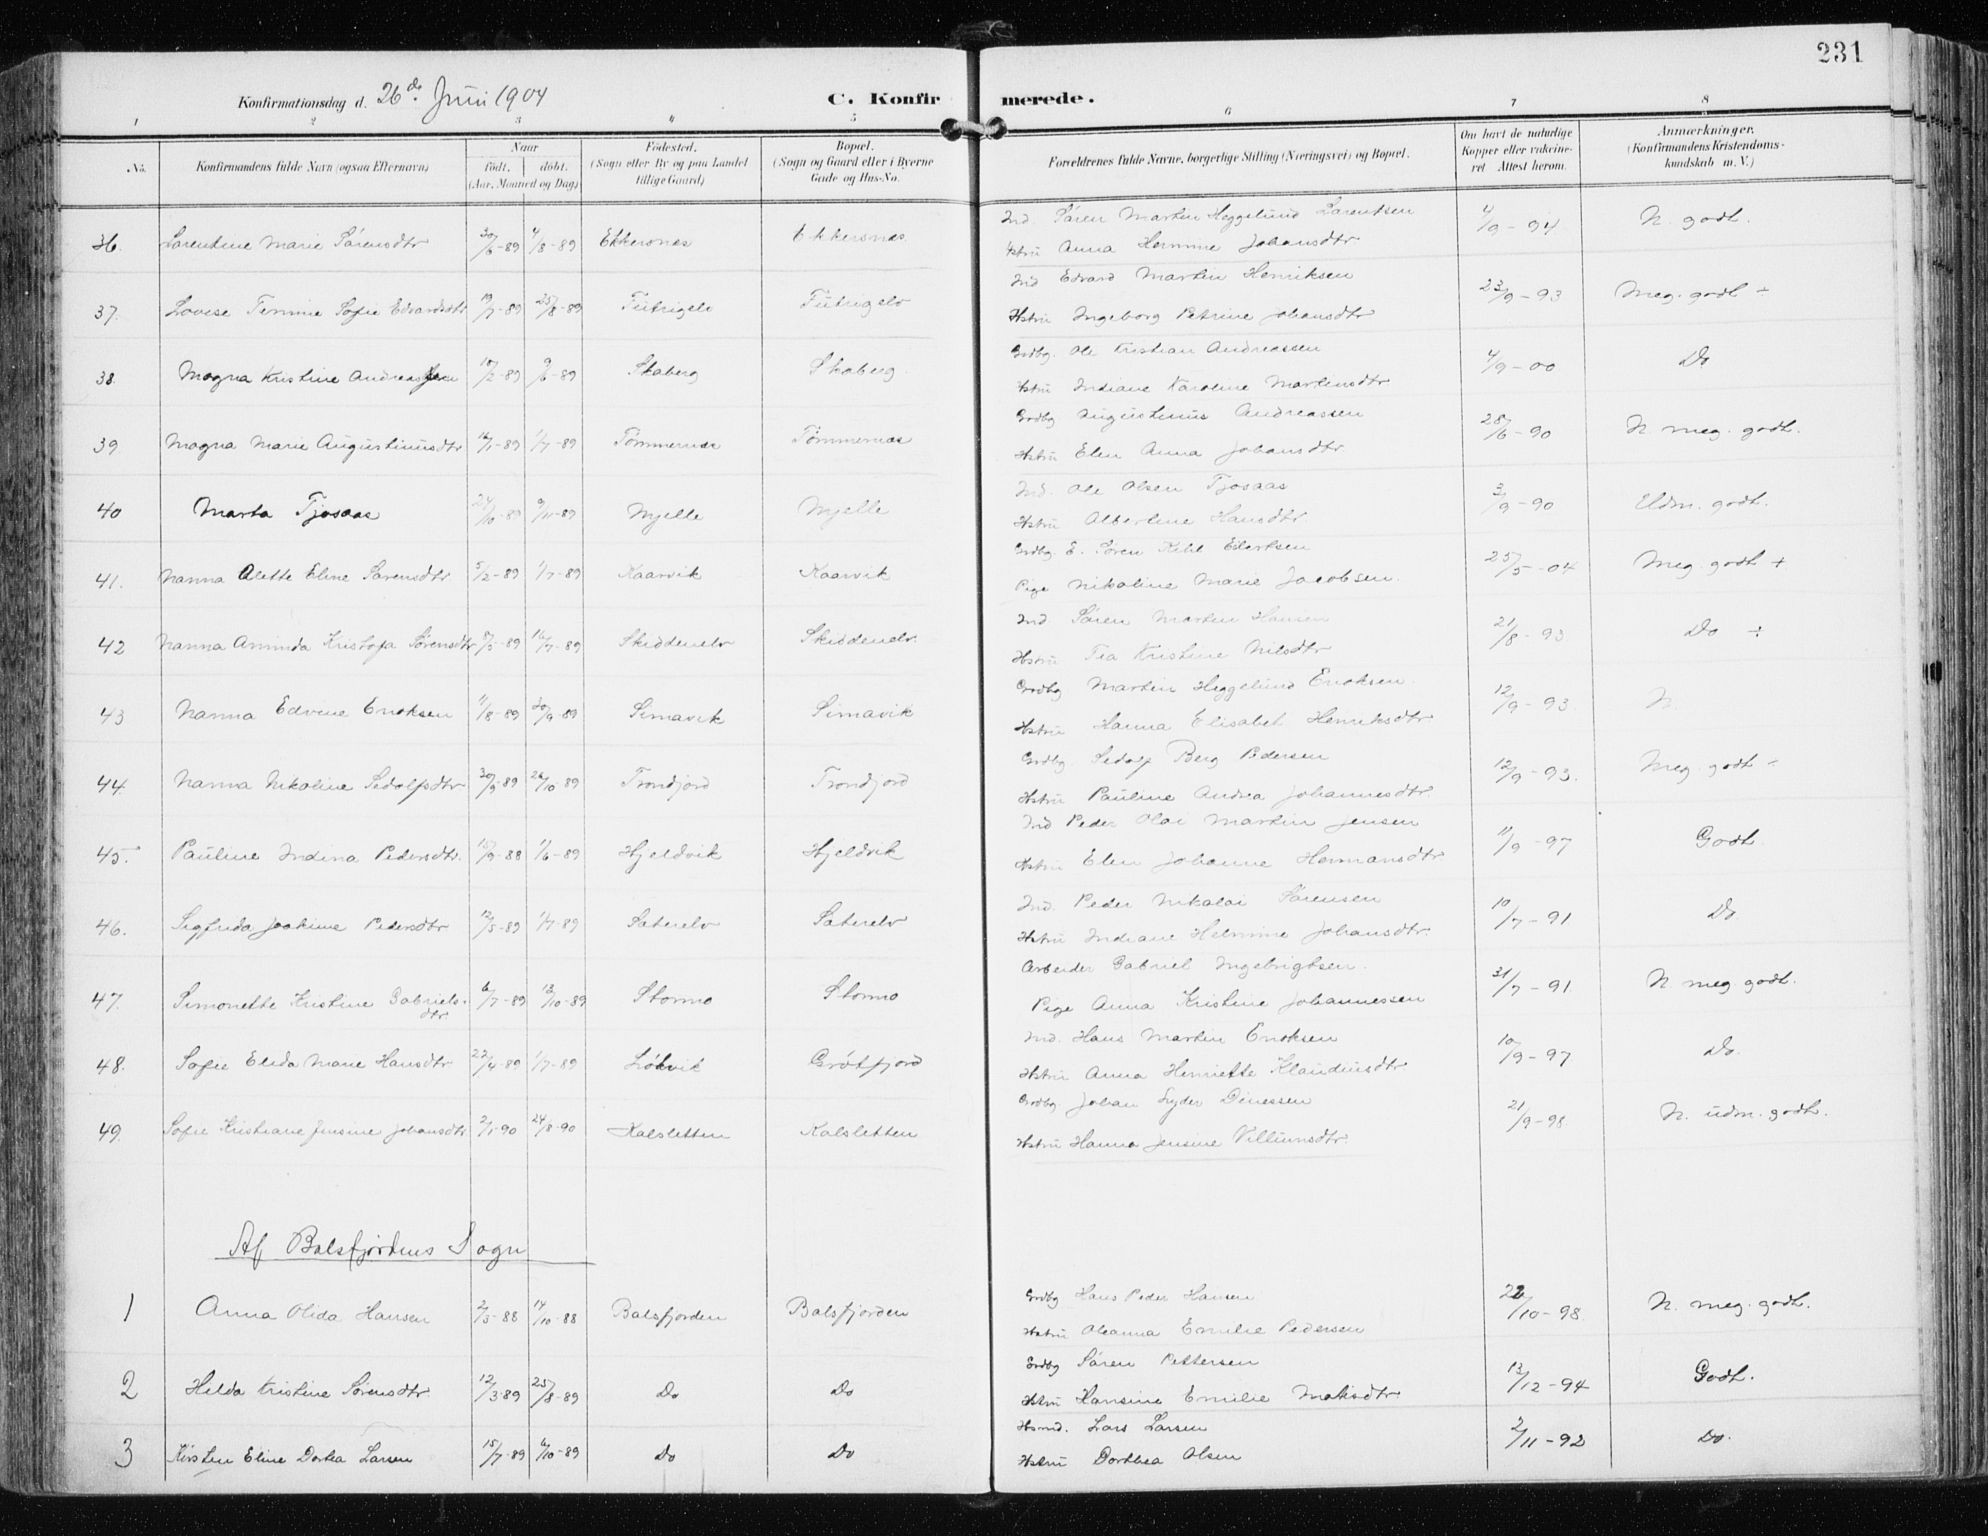 231
Konfirmationsdag d. 26de Juni 1904
C. Konfirmerede.
1 2 3 4 5 6 7 8
No. Konfirmandens fulde Navn (ogsaa Efternavn) Naar født. døbt. (Aar, Maaned og Dag) Fødested. (Sogn eller By og paa Landet tillige Gaard) Bopæl. (Sogn og Gaard eller i Byerne Gade og Hus-No. Forældrenes fulde Navne, borgerlige Stilling (Næringsvei) og Bopæl. Om havt de naturlige Kopper eller vaksineret Attest herom. Anmærkninger. (Konfirmandens Kristendomskundskab m. V.)
36. Larentine Marie Sørensdtr 30/6-89 4/8-89 Ekkersnes Ekkersnes Ind. Søren Martin Heggelund Larentsen 4/9-94 N. godt.
Hstru Anna Hermine Johansdtr
37. Lovise Temine Sofie Edvardsdtr 19/7-89 25/8-89 Futrigelv Futrigelv Ind Edvard Martin Henriksen 23/9-93 Meg. godt ÷
Hstru Ingeborg Petrine Johansdtr
38. Magna Kristine Andreassen 18/2-89 9/6-89 Skaberg Skaberg Grdbg. Ole Kristian Andreassen 4/9-00 Do
Hstru Indiane Karoline Martinsdtr
39 Magna Marie Augustinusdtr 16/1-89 1/7-89 Tømmernæs Tømmernæs Grdbg Augustinus Andreassen 28/6-90 N meg. godt.
Hstru Elen Anna Johansdtr
40 Marta Tjosaas 24/10-89 9/11-89 Mjelle Mjelle Ind. Ole Olsen Tjosaas 3/9-90 Udm. godt.
Hstru Albertine Hansdtr
41. Nanna Alette Eline Sørensdtr 5/2-89 1/7-89 Kaarvik Kaarvik Grdbg. E. Søren Kihl Edertsen 25/5-04 Meg. godt +
Pige Nikoline Marie Jacobsen.
42 Nanna Aminda Kristofa Sørensdtr 8/5-89 16/7-89 Skiddenelv Skiddenelv Ind. Søren Martin Hansen 21/8-93 Do ÷
Hstru Tea Kristine Nilsdtr
43 Nanna Edvine Enoksen 11/8-89 30/9-89 Simavik Simavik Grdbg Martin Heggelund Enoksen. 12/9-93 N.
Hstru Hanna Elisabet Henriksdtr
44. Nanna Nikoline Sedolfsdtr 30/9-89 26/10-89 Trondjord Trondjord Grdbg. Sedolf Berg Pedersen 12/9-93. Meg. godt ÷
Hstru Pauline Andrea Johannesdtr.
45. Pauline Indina Pedersdtr. 15/9-88 1/6-89 Hjeldvik Hjeldvik Ind Peder Olai Martin Jensen 11/9-97 Godt
Hstru Elen Johanne Hermansdtr
46. Sigfrida Joakime Pedersdtr 12/5-89 1/7-89 Saterelv Saterelv Ind. Peder Nikolai Sørensen 10/7-91 Do
Hstru Indiane Helmine Johansdtr.
47. Simonette Kristine Gabriels-dtr. 6/7-89 13/10-89 Stormo Stormo Arbeider Gabriel Ingebrigtsen. 31/7-91 N meg godt.
Pige Anna Kristine Johannessen
48. Sofie Elida Marie Hansdtr 22/4-89 1/7-89 Løkvik Grøtfjord Ind. Hans Martin Enoksen 10/9-97 Do.
Hstru Anna Henriette Klaudiusdtr
49. Sofie Kristiane Jensine Johansdtr 2/1-90 24/8-90 Kalsletten Kalsletten Grdbg. Johan Lyder Dinessen 21/9-98 N. udm. godt.
Hstru Hanna Jensine Villiumsdtr.
Af Balsfjordens Sogn
1 Anna Olida Hansen 2/5-88 14/10-88 Balsfjorden Balsfjorden Grdbg Hans Peder Hansen 22/10-98 N. meg. godt.
Hstru Oleanna Emilie Pedersen
2 Hilda Kristine Sørensdtr. 12/3-89 25/8-89 Do Do Grdbg Søren Pettersen 13/12-94 Godt.
Hstru Hansine Emilie Matisdtr
3 Kirsten Eline Dortea Larsen 15/7-89 6/10-89 Do Do Hsmd. Lars Larsen 2/11-92 Do.
Hstru Dorthea Olsen